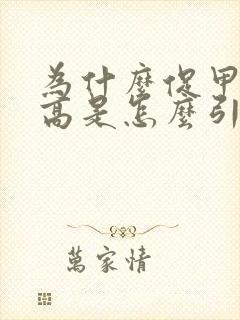 為什麼促甲
高是怎麼引
萬家情